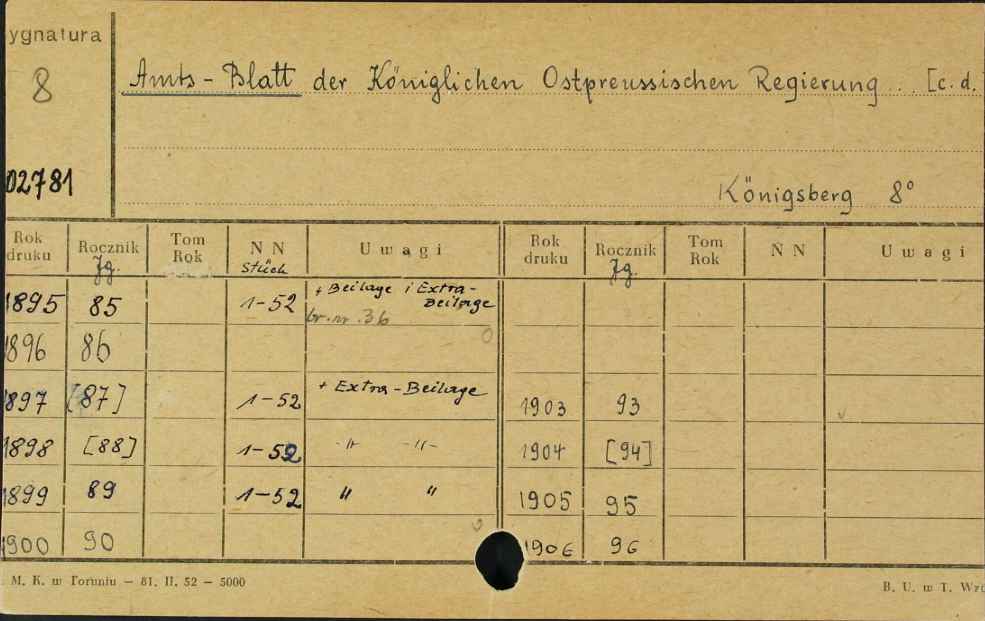 ygnatura
8
Amts-Blatt der Königlichen Ostpreussischen Regierung... [c.d.
02781
Königsberg 8°
Rok druku Rocznik Jg. Tom Rok NN Stück Uwagi Rok druku Rocznik Jg. Tom Rok NN Uwagi
1895 85 1-52 + Beilage i Extra-Beilage
br. nr. 36
1896 86
1897 [87] 1-52 + Extra-Beilage 1903 93
1898 [88] 1-52 -"- -"- 1904 [94]
1899 89 1-52 " " 1905 95
1900 90 1906 96
M. K. w Toruniu — 81. II. 52 — 5000
B. U. w T. Wzó